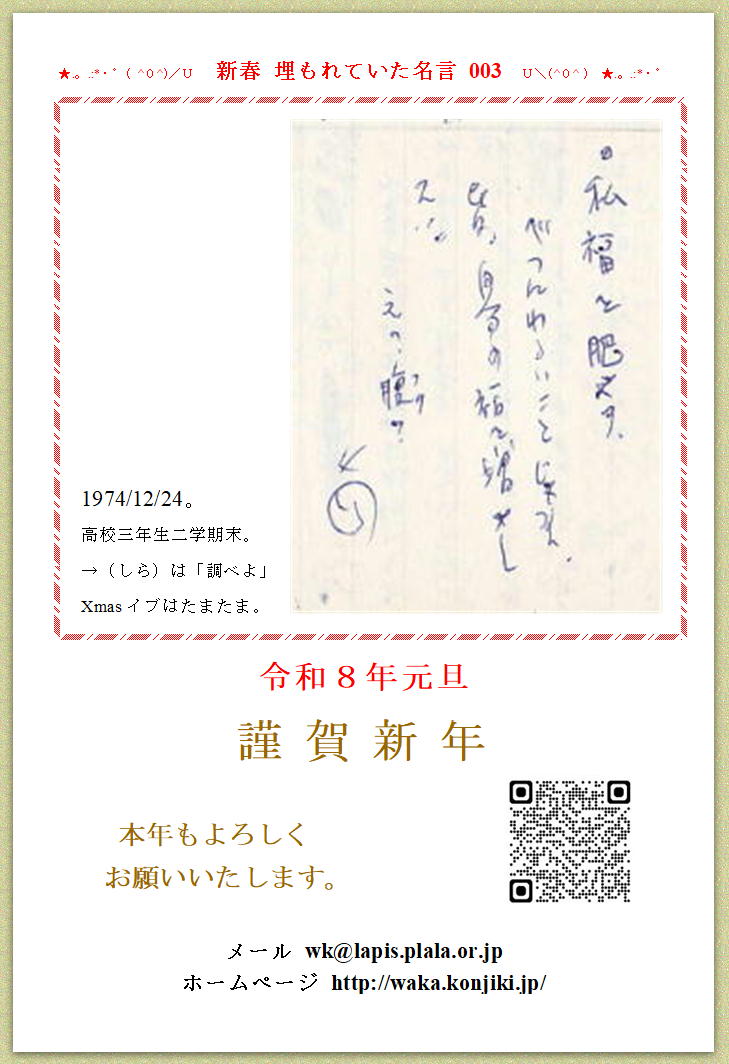 ★.。.:*・゜( ^０^)／U 新春 埋もれていた名言 003 U＼(^０^ ) ★.。.:*・゜
私福を肥やす。
べつにわるいことじゃない。
自分の福を増やし
えっ、腹フク？
1974/12/24。
高校三年生二学期末。
→（しら）は「調べよ」
Xmasイブはたまたま。
令和８年元旦
謹賀新年
本年もよろしく
お願いいたします。
メール wk@lapis.plala.or.jp
ホームページ http://waka.konjiki.jp/